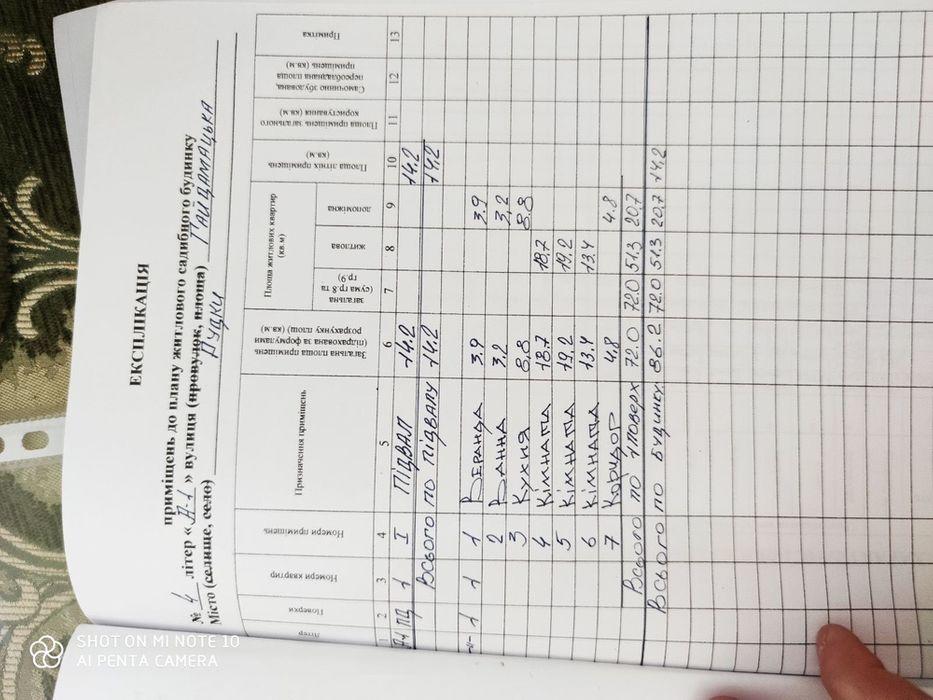 ЕКСПЛІКАЦІЯ
приміщень до плану житлового садибного будинку
№ 4 літер «А-1» вулиця (провулок, площа) ГАЙДАМАЦЬКА
Місто (селище, село) ЛУЦКИ
Літер Поверхи Номери квартир Номери приміщень Призначення приміщень Загальна площа приміщень (підрахована за формулами розрахунку площ) (кв.м) Площа житлових квартир (кв.м) загальна (сума гр.8 та гр.9) житлова допоміжна Площа літніх приміщень (кв.м) Площа приміщень загального користування (кв.м) Самочинно збудована, переобладнана площа приміщень (кв.м) Примітка
1 2 3 4 5 6 7 8 9 10 11 12 13
А-1 ПД 1 I ПІДВАЛ 14.2 14.2
Всього по підвалу 14.2 14.2
-"- 1 1 1 ВЕРАНДА 3.9 3.9
2 ВАННА 3.2 3,2
3 КУХНЯ 8.8 8.8
4 КІМНАТА 18.7 18.7
5 КІМНАТА 19.2 19.2
6 КІМНАТА 13.4 13.4
7 КОРИДОР 4.8 4.8
Всього по 1 поверх 72.0 72.0 51.3 20.7
Всього по будинку 86.2 72.0 51.3 20.7 14.2
SHOT ON MI NOTE 10
AI PENTA CAMERA